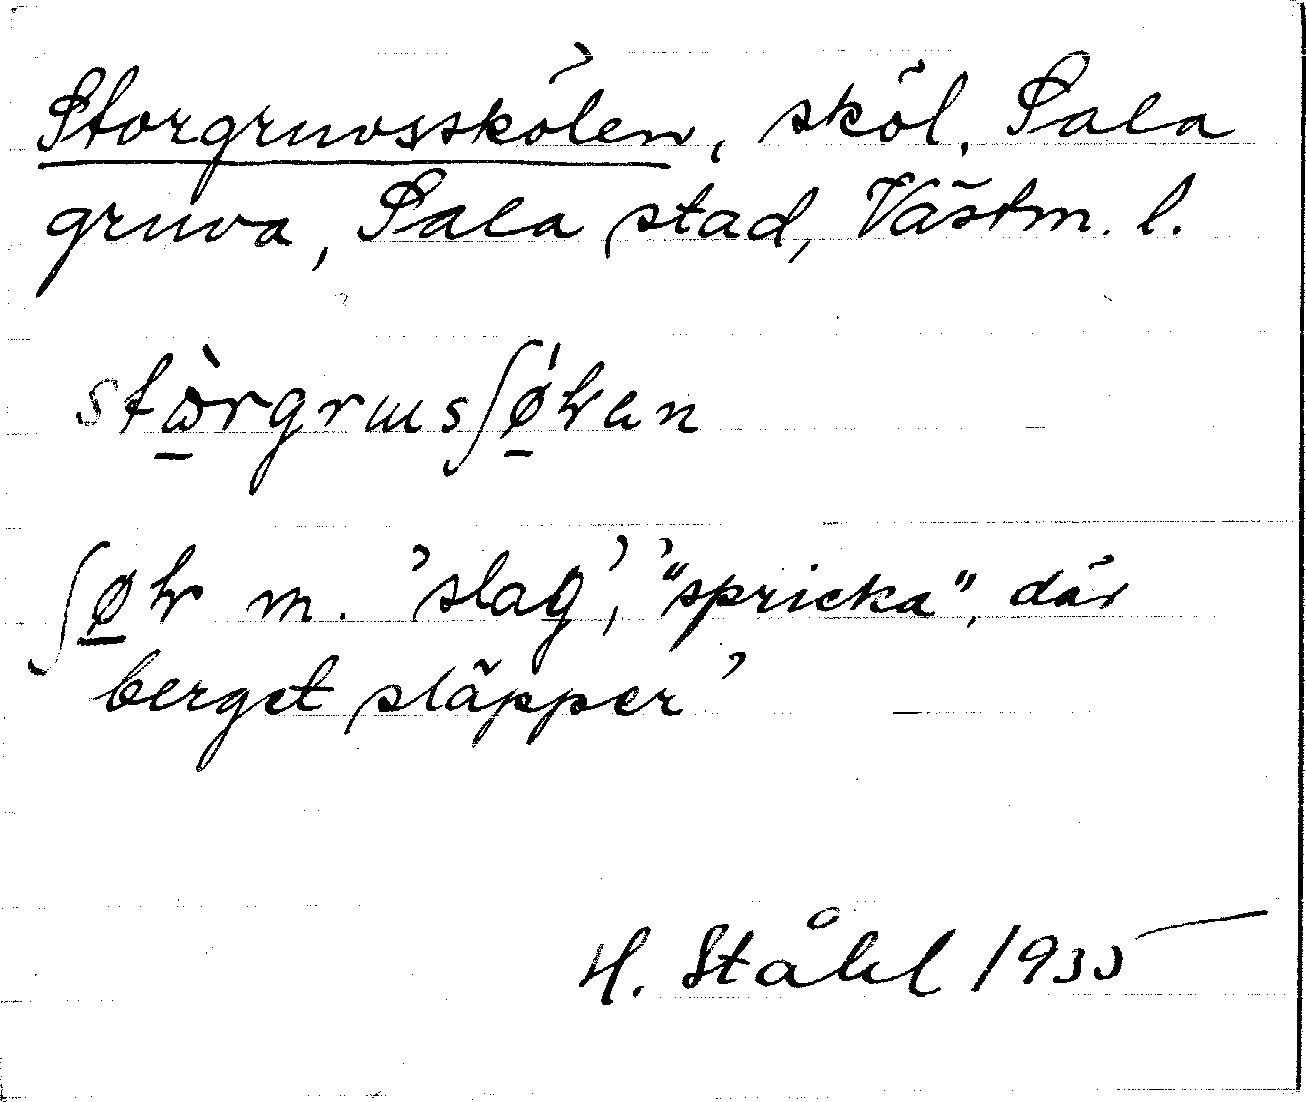 Storgruvsskölen, sköl, Sala
gruva, Sala stad, Västm. l.
m. 'slag', '"spricka", där
berget släpper'
H. Ståhl 1935